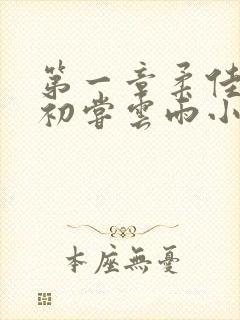 第一章柔佳
初嘗雲雨小
本座無憂